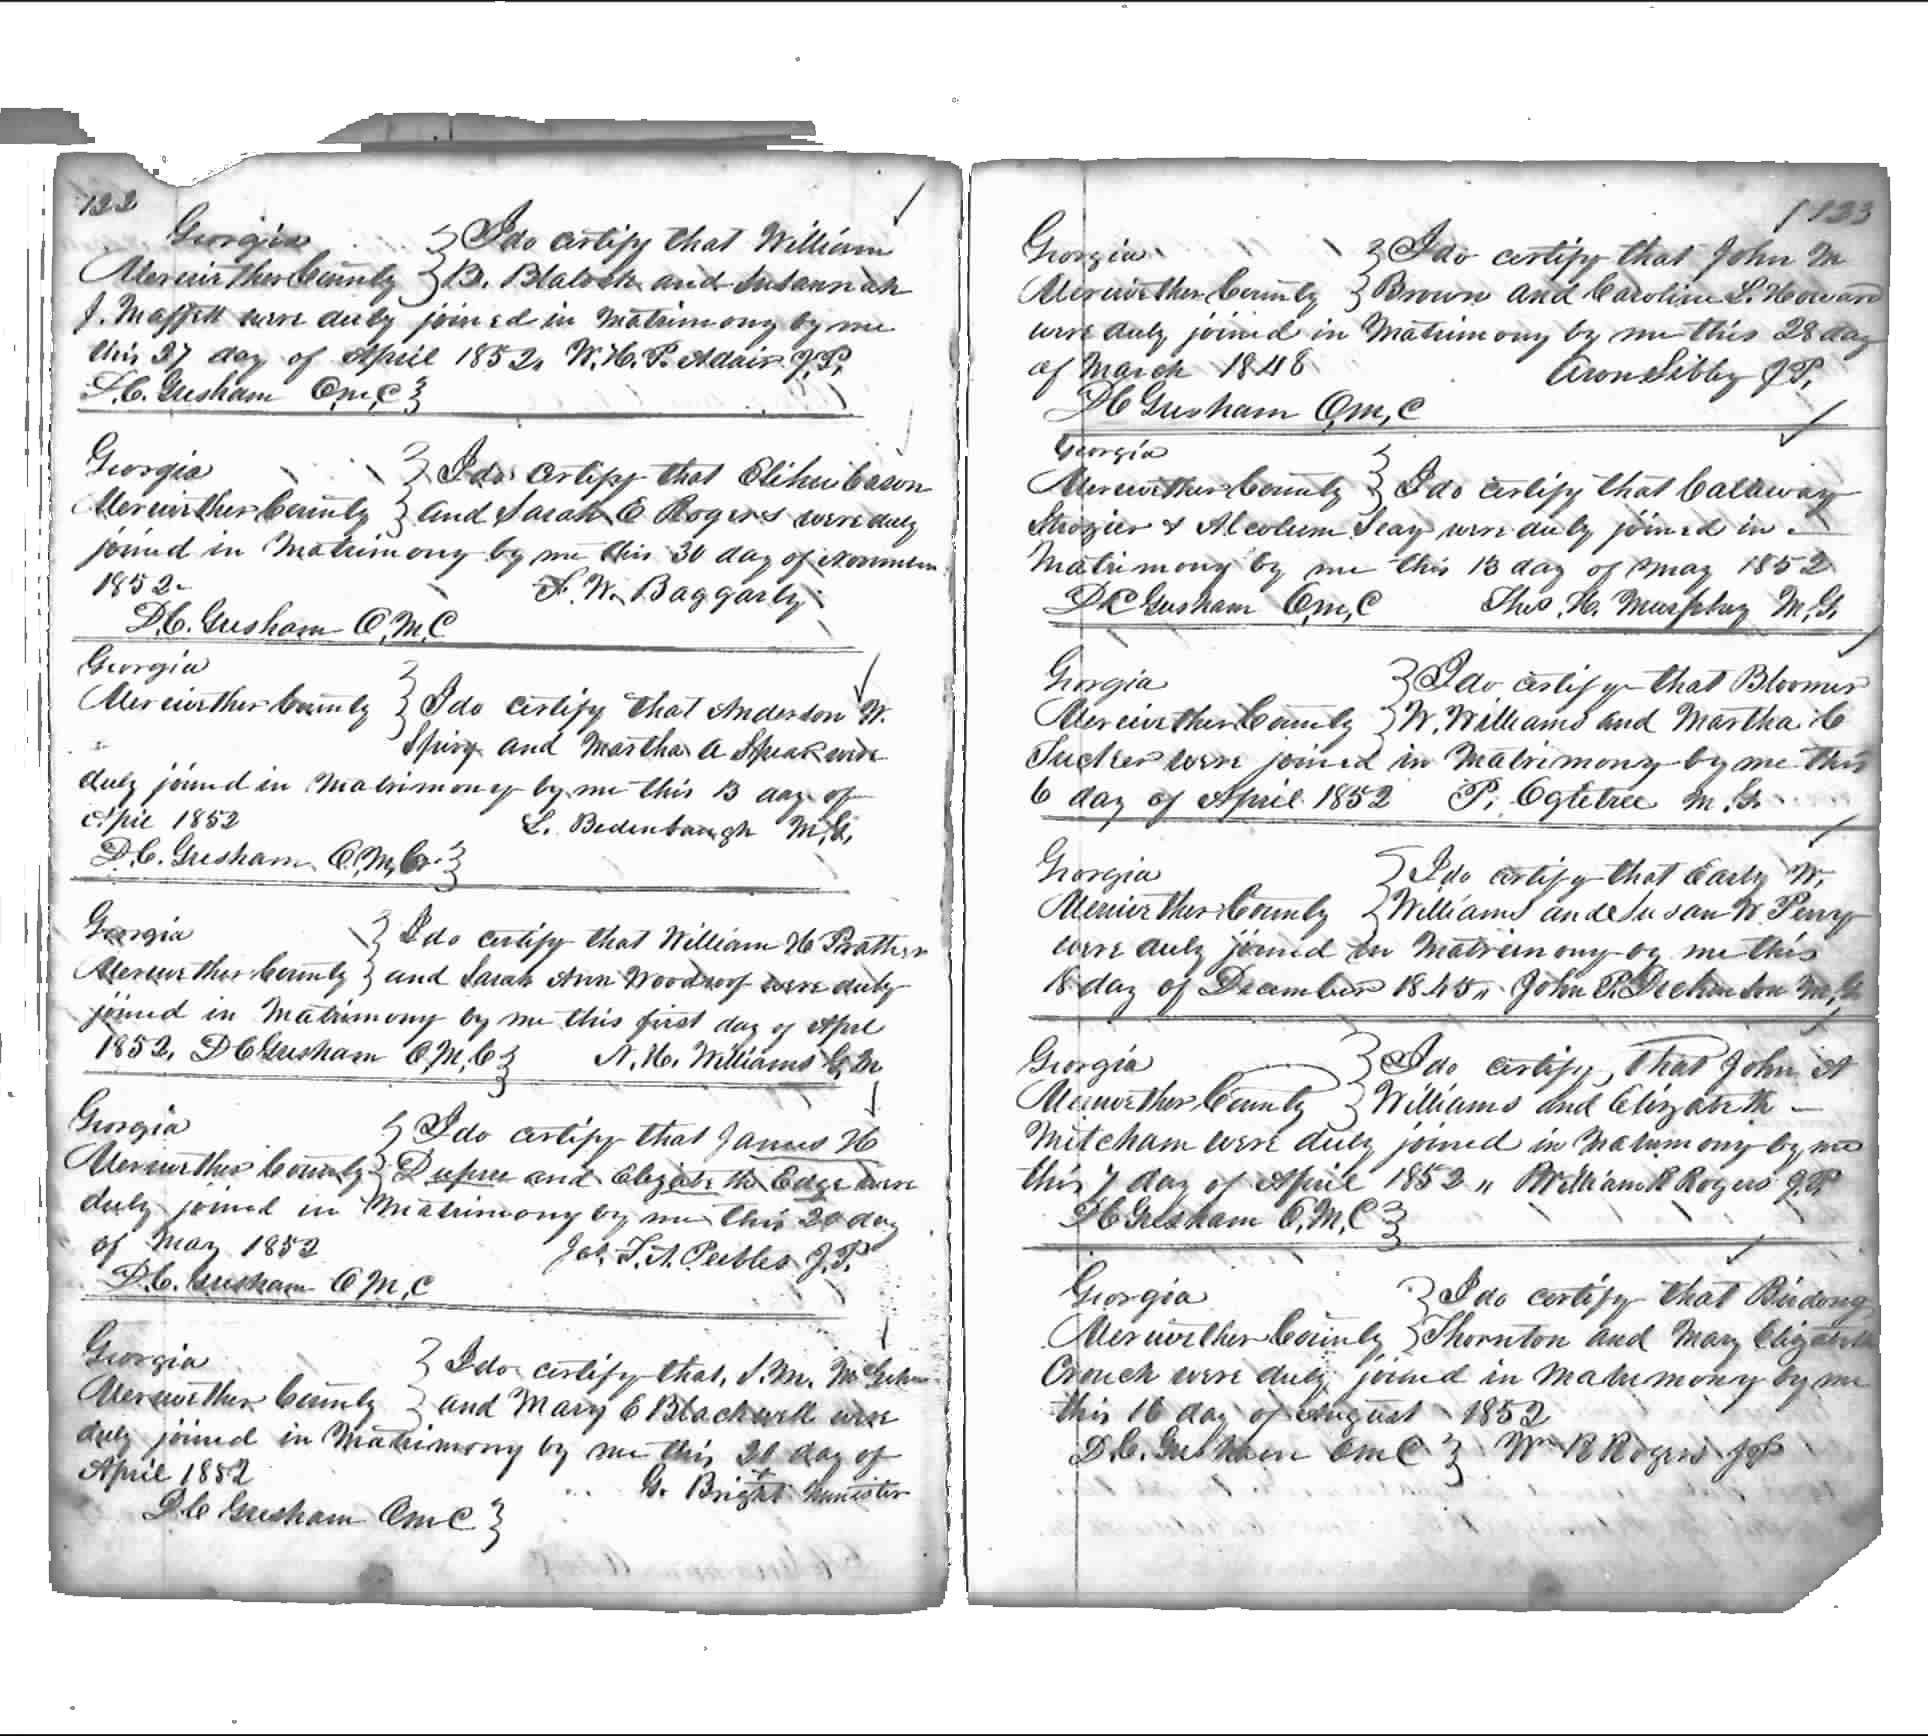 122
Georgia } I do certify that William
Meriwether County } B. Blalock and Susannah
J. Maffett were duly joined in Matrimony by me
this 27 day of April 1852. W. H. P. Adair J.P.
D.C. Gresham C,M,C }
Georgia } I do certify that Elihu Cason
Meriwether County } and Sarah E Rogers were duly
joined in Matrimony by me this 30 day of
1852. W. Baggarly
D.C. Gresham C,M,C
Georgia
Meriwether County } I do certify that Anderson W.
Spivy and Martha A Speak were
duly joined in Matrimony by me this 13 day of
April 1852 L. Bedenbaugh M,G,
D.C. Gresham C,M,C }
Georgia } I do certify that William H Prather
Meriwether County } and Sarah Ann Woodroof were duly
joined in Matrimony by me this first day of April
1852. D C Gresham C M,C } N. H. Williams G,M
Georgia } I do certify that James H
Meriwether County } Dupree and Elizabeth Edge were
duly joined in Matrimony by me this 20 day
of May 1852 Jas. T. A. Peebles J.P.
D.C. Gresham C M,C
Georgia } I do certify that, S. M. McGehee
Meriwether County } and Mary E Blackwell were
duly joined in Matrimony by me this 20 day of
April 1852 G. Bright Minister
D C Gresham C M C }
123
Georgia } I do certify that John M
Meriwether County } Brown and Caroline L. Howard
were duly joined in Matrimony by me this 28 day
of March 1848 Aron Sibley J P,
D C Gresham C,M,C
Georgia
Meriwether County } I do certify that Callaway
Strozier & Alcolum Seay were duly joined in
Matrimony by me this 13 day of May 1852
D C Gresham C,M,C Thos. H. Murphey M,G,
Georgia } I do certify that Bloomer
Meriwether County } W. Williams and Martha C
Tucker were joined in Matrimony by me this
6 day of April 1852 P. Ogletree M.G.
Georgia } I do certify that Early W.
Meriwether County } Williams and Susan W Perry
were duly joined in Matrimony by me this
18 day of December 1845 „ John P. Dickenson M,G
Georgia } I do certify, that John A
Meriwether County } Williams and Elizabeth
Mitcham were duly joined in Matrimony by me
this 7 day of April 1852 „ William R Rogers J.P
D C Gresham C,M,C }
Georgia } I do certify that Birdong
Meriwether County } Thornton and Mary Elizabeth
Crouch were duly joined in Matrimony by me
this 16 day of August 1852
D.C. Gresham C M C } Wm R Rogers J P